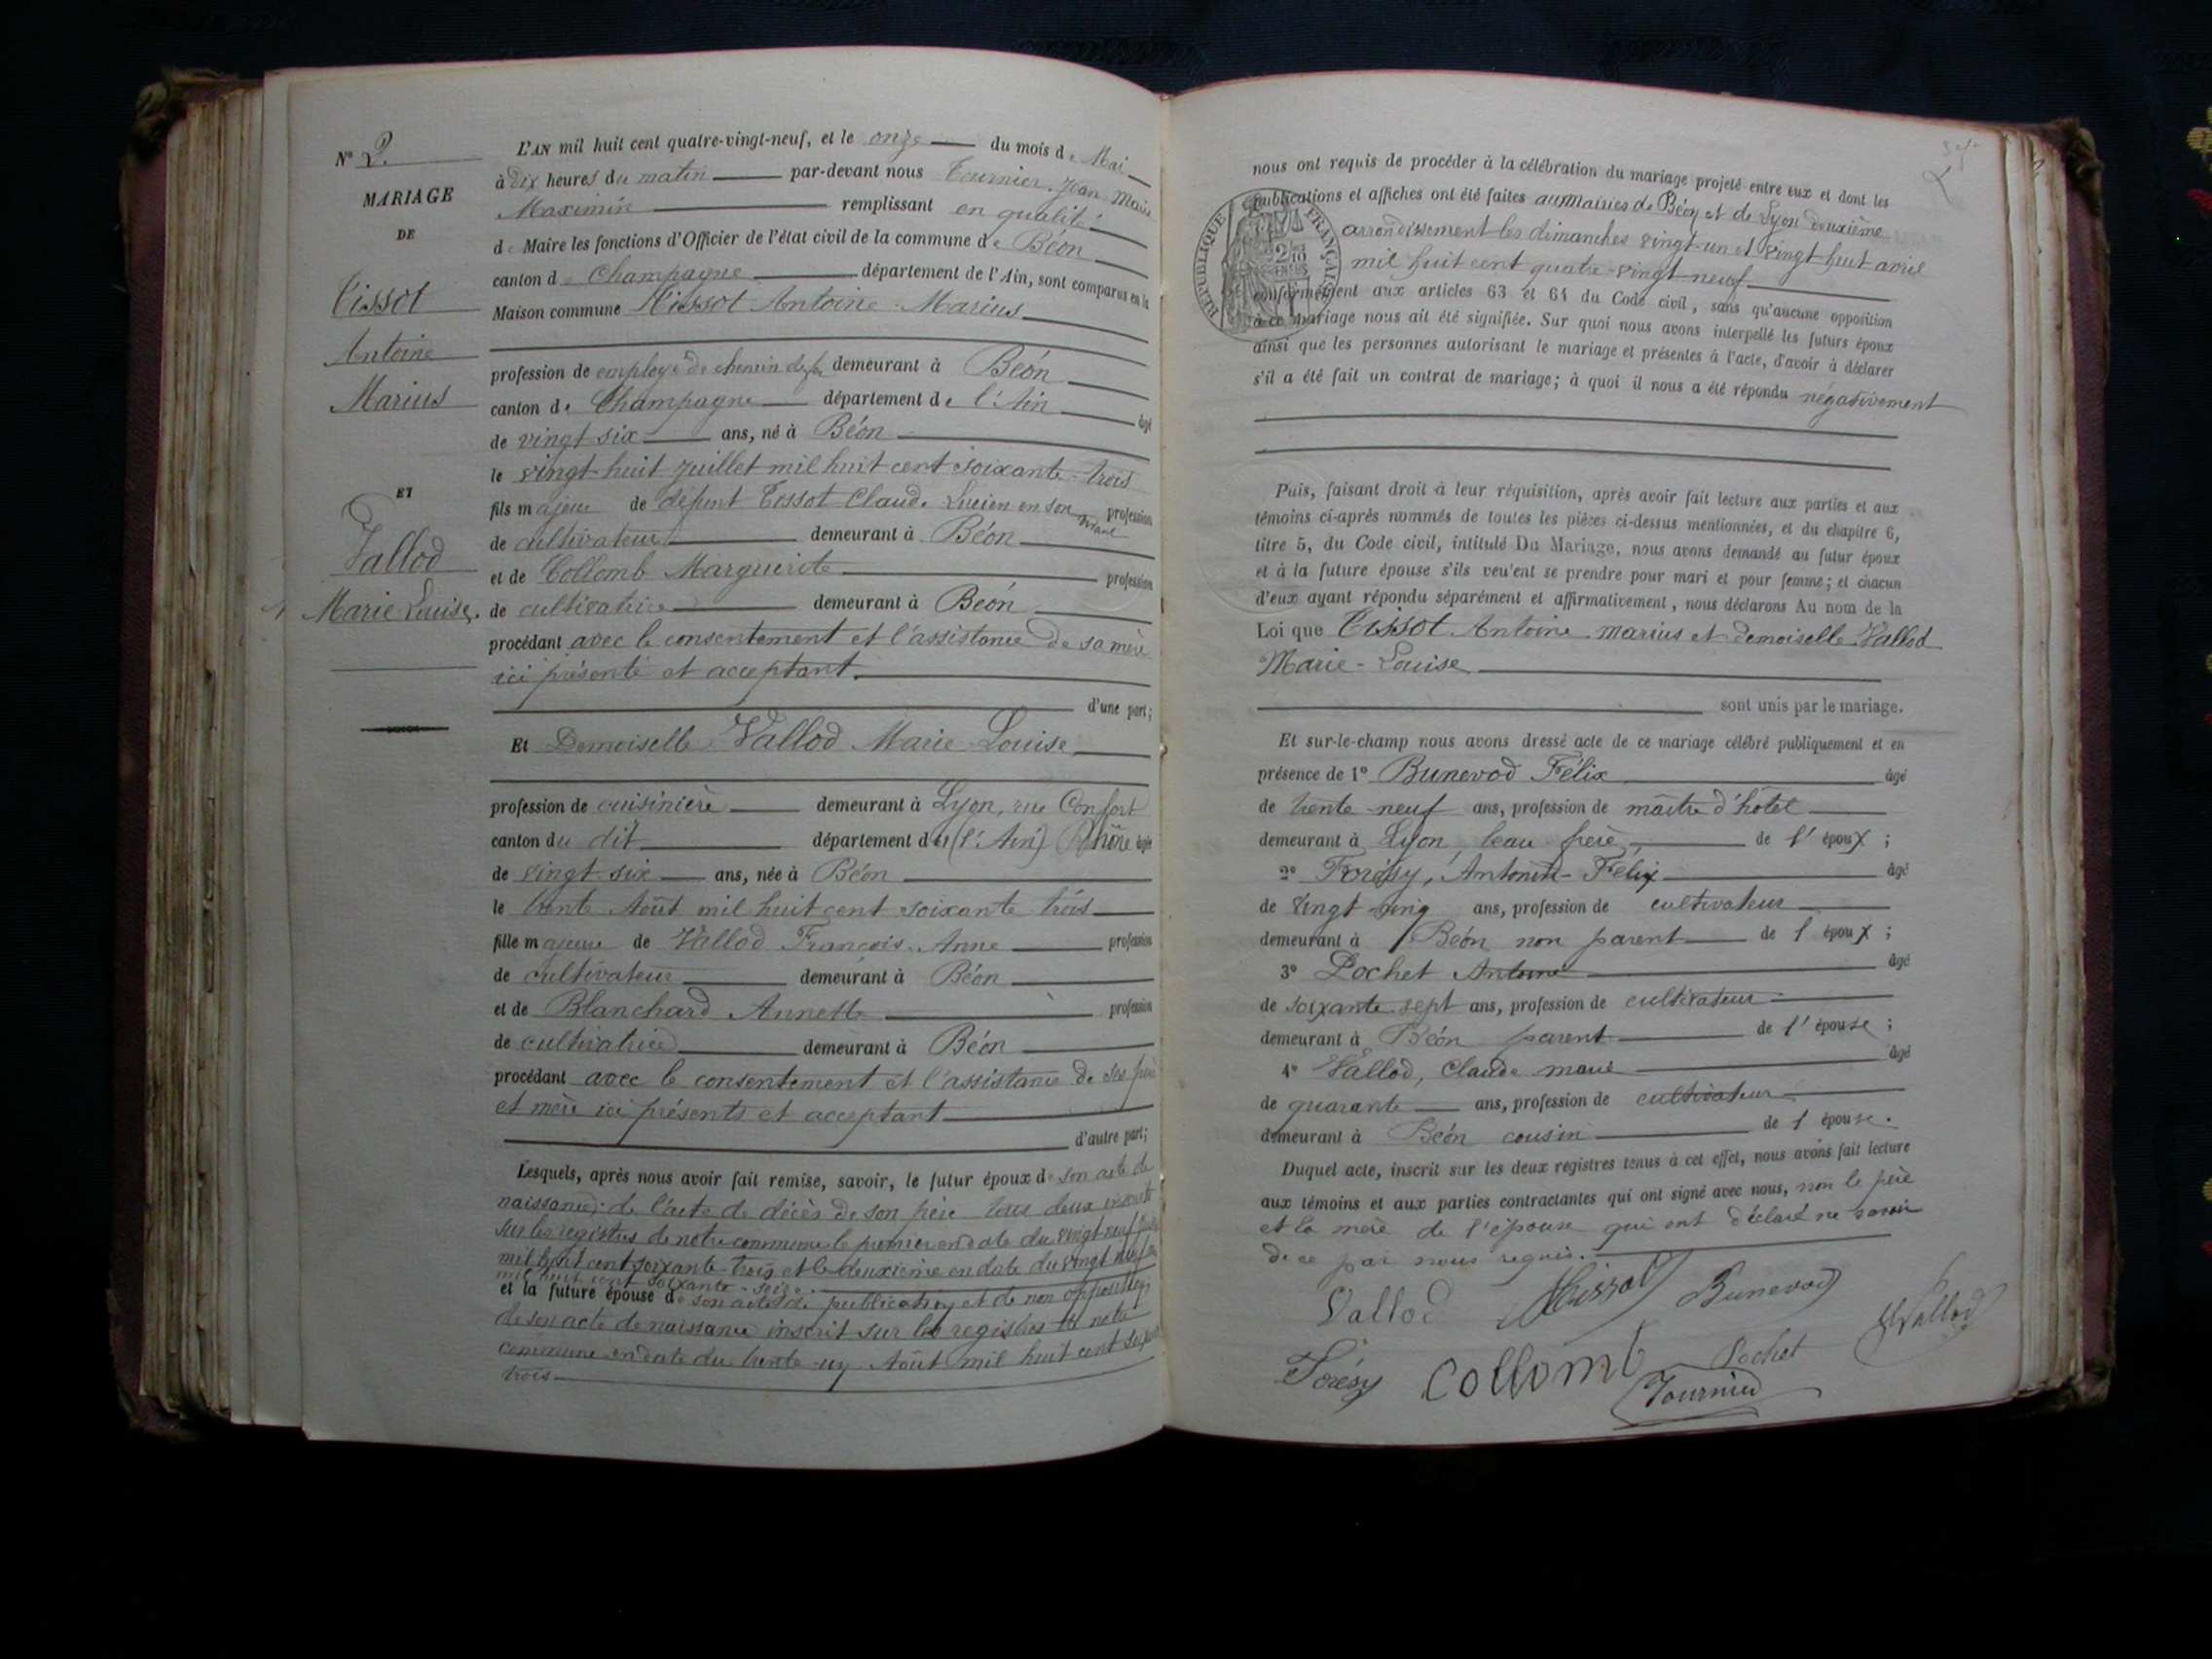 N° 2.
MARIAGE
DE
Tissot
Antoine
Marius
ET
Vallod
Marie Louise.
L'AN mil huit cent quatre-vingt-neuf, et le onze du mois de Mai
à dix heures du matin par-devant nous Tournier, Jean Marie
Maximin remplissant en qualité
de Maire les fonctions d'Officier de l'état civil de la commune de Béon
canton de Champagne département de l'Ain, sont comparus en la
Maison commune Tissot Antoine Marius
profession de employé de chemin de fer demeurant à Béon
canton de Champagne département de l'Ain âgé
de vingt six ans, né à Béon
le vingt-huit juillet mil huit cent soixante-trois
fils majeur de défunt Tissot Claude Lucien en son vivant profession
de cultivateur demeurant à Béon
et de Collomb Marguerite profession
de cultivatrice demeurant à Béon
procédant avec le consentement et l'assistance de sa mère
ici présente et acceptant.
d'une part;
Et Demoiselle Vallod Marie Louise
profession de cuisinière demeurant à Lyon, rue Confort
canton du dit département de (l'Ain) Rhône âgée
de vingt six ans, née à Béon
le trente Août mil huit cent soixante trois
fille majeure de Vallod François Anne profession
de cultivateur demeurant à Béon
et de Blanchard Annette profession
de cultivatrice demeurant à Béon
procédant avec le consentement et l'assistance de ses père
et mère ici présents et acceptant
d'autre part;
Lesquels, après nous avoir fait remise, savoir, le futur époux de son acte de
naissance; de l'acte de décès de son père tous deux inscrits
sur les registres de notre commune le premier en date du vingt-neuf
mil huit cent soixante-trois et le deuxième en date du vingt neuf
mil huit cent soixante-seize.
et la future épouse de son acte de publication et de non opposition
de son acte de naissance inscrit sur les registres de notre
commune en date du trente-un Août mil huit cent soixante
trois
nous ont requis de procéder à la célébration du mariage projeté entre eux et dont les
publications et affiches ont été faites aux Mairies de Béon et de Lyon deuxième
arrondissement les dimanches vingt-un et vingt huit avril
mil huit cent quatre-vingt neuf
REPUBLIQUE FRANÇAISE
conformément aux articles 63 et 64 du Code civil, sans qu'aucune opposition
à ce mariage nous ait été signifiée. Sur quoi nous avons interpellé les futurs époux
ainsi que les personnes autorisant le mariage et présentes à l'acte, d'avoir à déclarer
s'il a été fait un contrat de mariage; à quoi il nous a été répondu négativement
Puis, faisant droit à leur réquisition, après avoir fait lecture aux parties et aux
témoins ci-après nommés de toutes les pièces ci-dessus mentionnées, et du chapitre 6,
titre 5, du Code civil, intitulé Du Mariage, nous avons demandé au futur époux
et à la future épouse s'ils veulent se prendre pour mari et pour femme; et chacun
d'eux ayant répondu séparément et affirmativement, nous déclarons Au nom de la
Loi que Tissot Antoine Marius et demoiselle Vallod
Marie-Louise
sont unis par le mariage.
Et sur-le-champ nous avons dressé acte de ce mariage célébré publiquement et en
présence de 1° Bunevod Félix âgé
de trente-neuf ans, profession de maître d'hôtel
demeurant à Lyon, beau frère, de l'époux;
2° Forésy, Antonin-Félix âgé
de vingt cinq ans, profession de cultivateur
demeurant à Béon non parent de l'époux;
3° Pochet Antoine âgé
de soixante sept ans, profession de cultivateur
demeurant à Béon parent de l'épouse;
4° Vallod, Claude marie âgé
de quarante ans, profession de cultivateur
demeurant à Béon cousin de l'épouse.
Duquel acte, inscrit sur les deux registres tenus à cet effet, nous avons fait lecture
aux témoins et aux parties contractantes qui ont signé avec nous, non le père
et la mère de l'épouse qui ont déclaré ne savoir
de ce par nous requis.
Vallod Tissot Bunevod
Forésy Collomb Pochet Vallod
Tournier